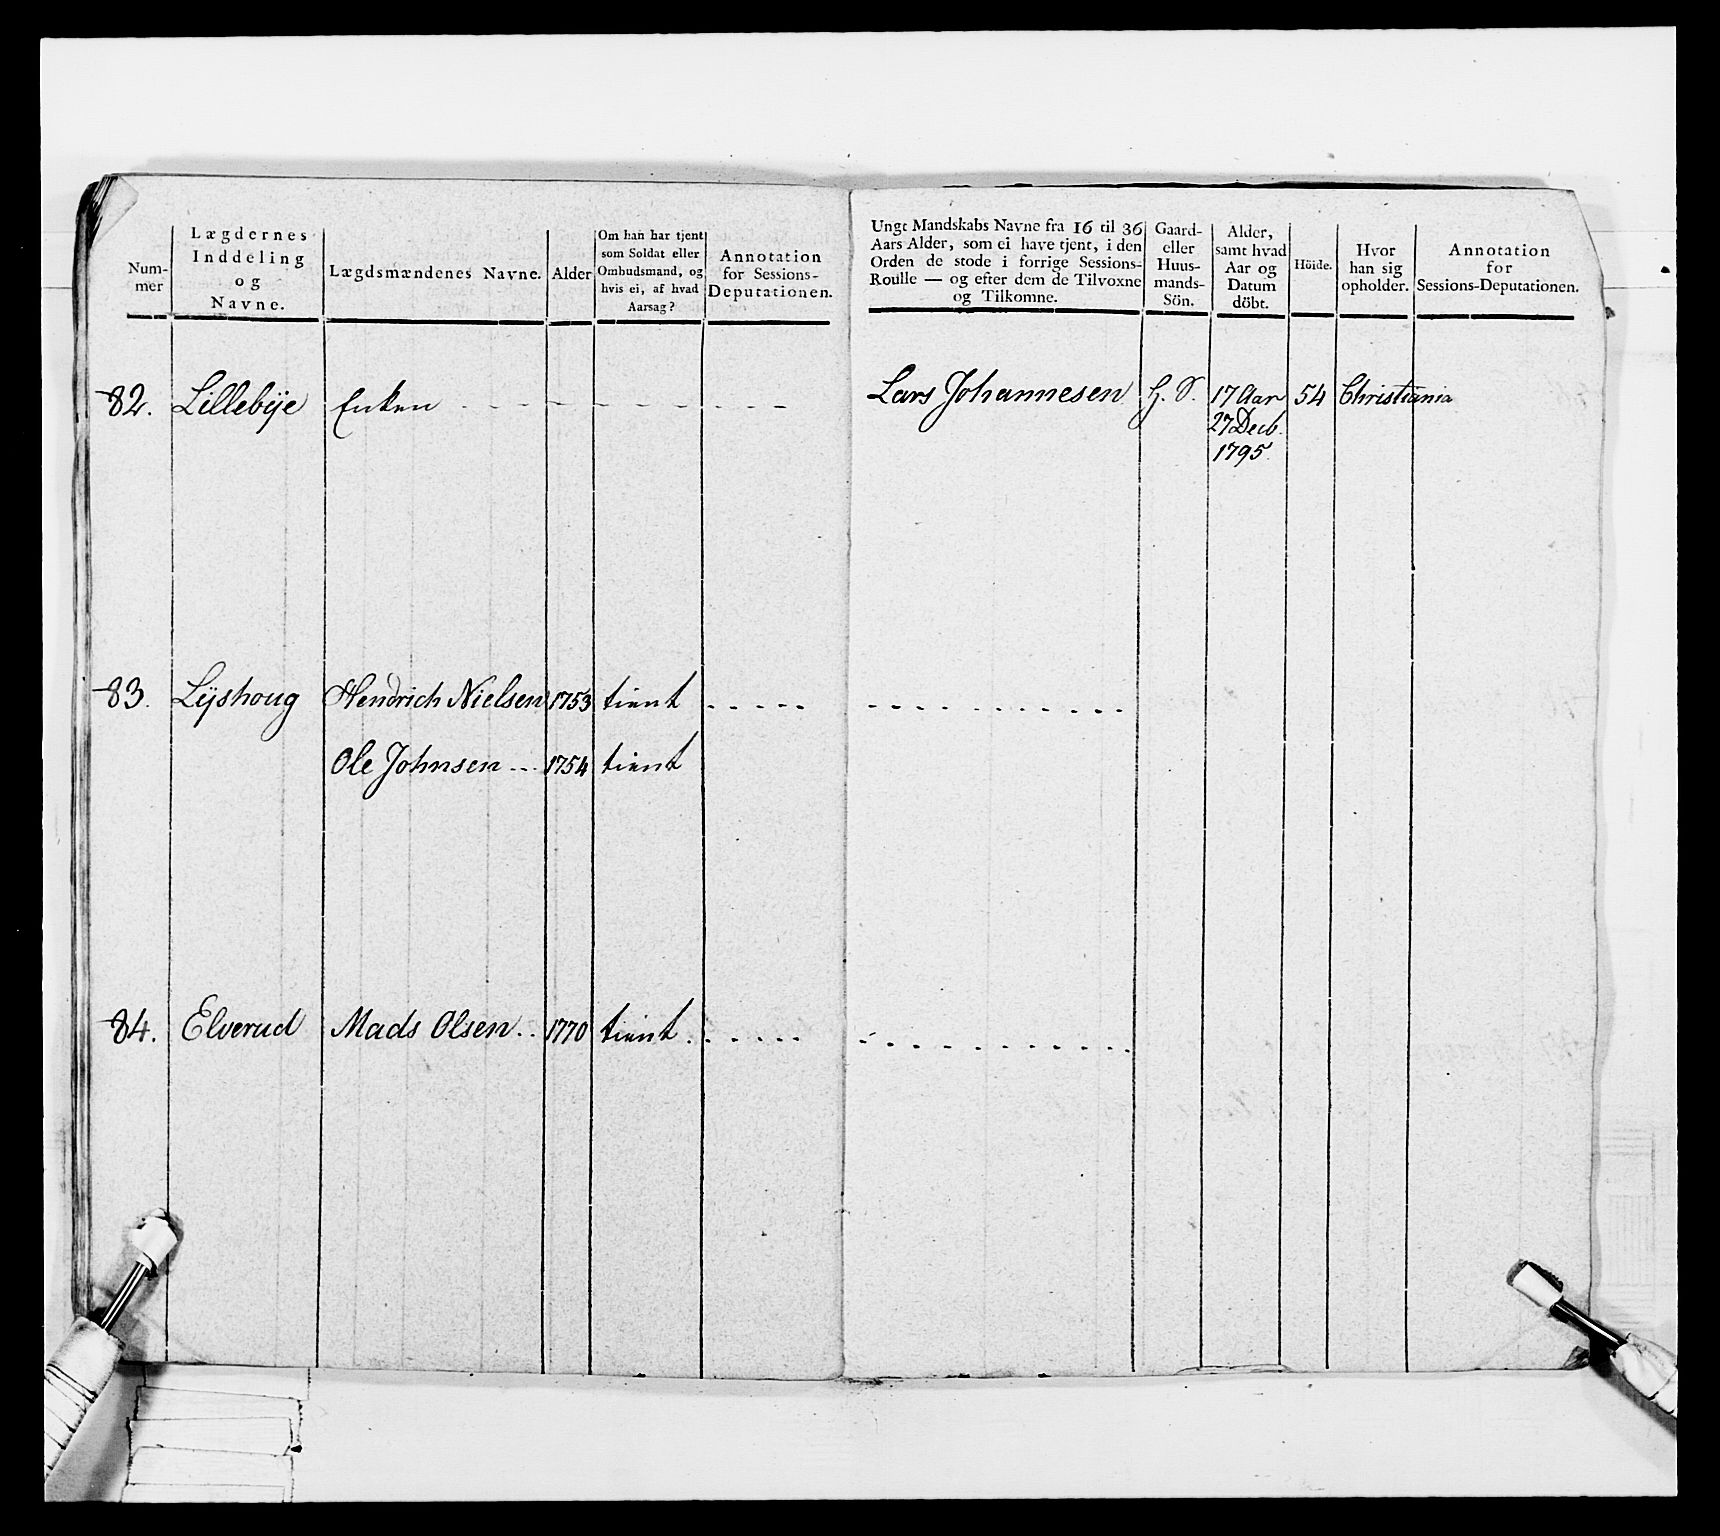 Num-
mer
Lægdernes
Inddeling
og
Navne.
Lægdsmændenes Navne.
Alder
Om han har tjent
som Soldat eller
Ombudsmand, og
hvis ei, af hvad
Aarsag?
Annotation
for Sessions-
Deputationen.
Ungt Mandskabs Navne fra 16 til 36
Aars Alder, som ei have tjent, i den
Orden de stode i forrige Sessions-
Roulle — og efter dem de Tilvoxne
og Tilkomne.
Gaard-
eller
Huus-
mands-
Sön.
Alder,
samt hvad
Aar og
Datum
döbt.
Höide.
Hvor
han sig
opholder.
Annotation
for
Sessions-Deputationen.
82. Lillebÿe Enken - - - - - - - - - Lars Johannesen G. S. 17 Aar 54 Christiania
27 Decb.
1795.
83. Lÿshoug Hendrich Nielsen 1753 tient - - - - - - - - - - - - - - -
Ole Johnsen - - - 1754 tient
84. Elverud Mads Olsen . . 1770 tient . - - - - - - - - - - - - - - -